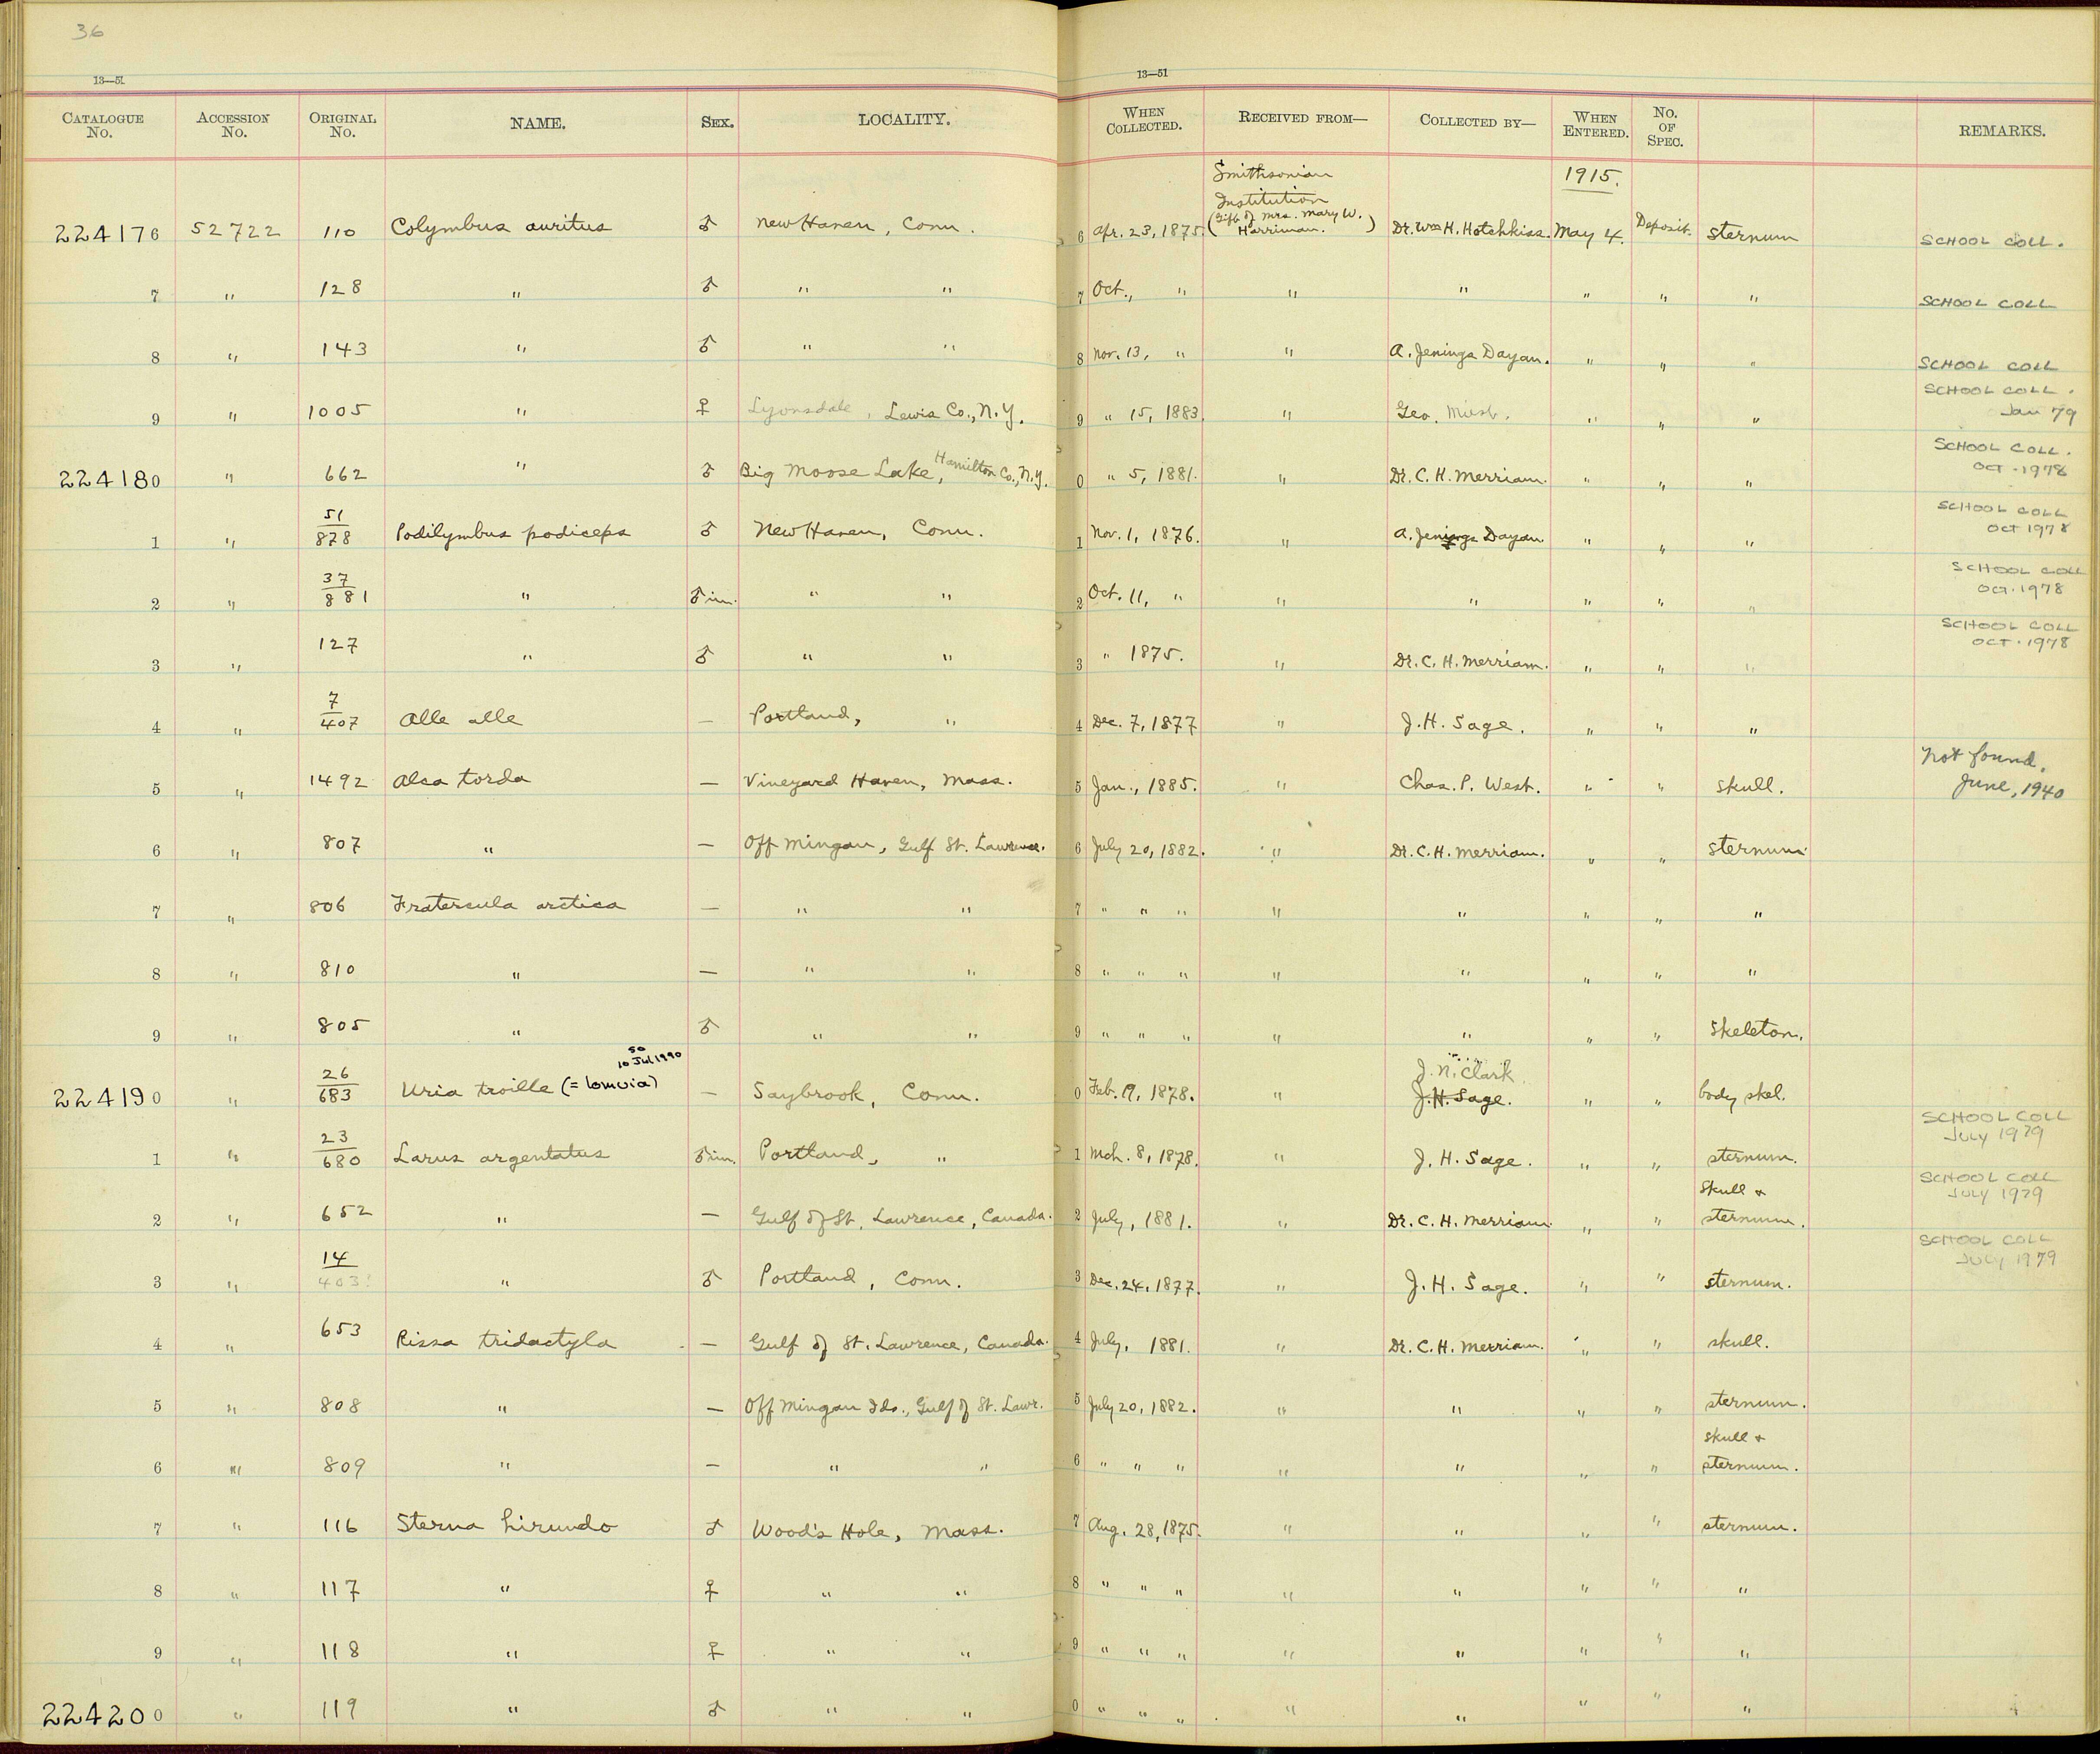 36
13—51
13—51
CATALOGUE No. ACCESSION No. ORIGINAL No. NAME. SEX. LOCALITY. WHEN COLLECTED. RECEIVED FROM— COLLECTED BY— WHEN ENTERED. No. OF SPEC. REMARKS.
Smithsonian Institution (Gift of Mrs. Mary W. Harriman.) 1915.
224176 52722 110 Colymbus auritus ♂ New Haven, Conn. 6 Apr. 23, 1875. Dr. Wm H. Hotchkiss. May 4. Deposit. sternum SCHOOL COLL.
7 " 128 " ♂ " " 7 Oct., " " " " " " SCHOOL COLL
8 " 143 " ♂ " " 8 Nov. 13, " " A. Jenings Dayan. " " " SCHOOL COLL
9 " 1005 " ♀ Lyonsdale, Lewis Co., N.Y. 9 " 15, 1883. " Geo. " " " SCHOOL COLL. Jan 79
224180 " 662 " ♂ Big Moose Lake, Hamilton Co., N.Y. 0 " 5, 1881. " Dr. C. H. Merriam. " " " SCHOOL COLL. OCT. 1978
1 " 51/878 Podilymbus podiceps ♂ New Haven, Conn. 1 Nov. 1, 1876. " A. Jenings Dayan " " " SCHOOL COLL OCT 1978
2 " 37/881 " ♂ im. " " 2 Oct. 11, " " " " " " SCHOOL COLL OCT. 1978
3 " 127 " ♂ " " 3 " 1875. " Dr. C. H. Merriam. " " " SCHOOL COLL OCT. 1978
4 " 7/407 Alle alle — Portland, " 4 Dec. 7, 1877 " J. H. Sage. " " "
5 " 1492 Alca torda — Vineyard Haven, Mass. 5 Jan., 1885. " Chas. P. West. " " skull. Not found, June, 1940
6 " 807 " — Off Mingan, Gulf St. Lawrence. 6 July 20, 1882. " Dr. C. H. Merriam. " " sternum
7 " 806 Fratercula arctica — " " 7 " " " " " " " "
8 " 810 " — " " 8 " " " " " " " "
9 " 805 " ♂ " " 9 " " " " " " " skeleton.
SO 10 Jul 1990
224190 " 26/683 Uria troille (= lomvia) — Saybrook, Conn. 0 Feb. 9, 1878. " J. N. Clark. J. H. Sage. " " body skel.
1 " 23/680 Larus argentatus ♂ im. Portland, " 1 Mch. 8, 1878. " J. H. Sage. " " sternum. SCHOOL COLL July 1979
2 " 652 " — Gulf of St. Lawrence, Canada. 2 July, 1881. " Dr. C. H. Merriam " " Skull & sternum. SCHOOL COLL July 1979
3 " 14/403 " ♂ Portland, Conn. 3 Dec. 24, 1877. " J. H. Sage. " " sternum. SCHOOL COLL July 1979
4 " 653 Rissa tridactyla — Gulf of St. Lawrence, Canada. 4 July, 1881. " Dr. C. H. Merriam. " " skull.
5 " 808 " — Off Mingan Ids., Gulf of St. Lawr. 5 July 20, 1882. " " " " sternum.
6 " 809 " — " " 6 " " " " " " " skull & sternum.
7 " 116 Sterna hirundo ♂ Wood's Hole, Mass. 7 Aug. 28, 1875. " " " " sternum.
8 " 117 " ♀ " " 8 " " " " " " " "
9 " 118 " ♀ " " 9 " " " " " " " "
224200 " 119 " ♂ " " 0 " " " " " " " "